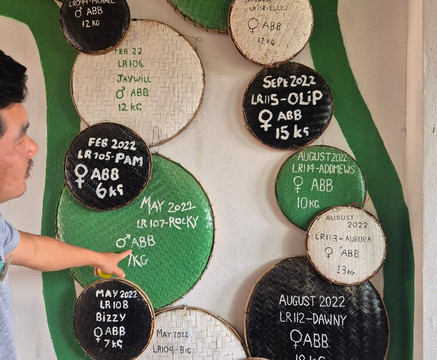 LR094-MICHAEL
♂ ABB
12 KG
FEB 22
LR106
JAYWILL
♂ ABB
12 KG
FEB 2022
LR105-PAM
♀ ABB
6 KG
MAY 2022
LR107-ROCKY
♂ ABB
7KG
MAY 2022
LR108
BIZZY
♀ ABB
7 KG
MAY 2022
LR109-BIG
♀ ABB
12 KG
SEPT 2022
LR115-OLIP
♀ ABB
15 KG
AUGUST 2022
LR114-ADDMEWS
♀ ABB
10 KG
AUGUST 2022
LR113-AURORA
♀ ABB
13KG
AUGUST 2022
LR112-DAWNY
♀ ABB